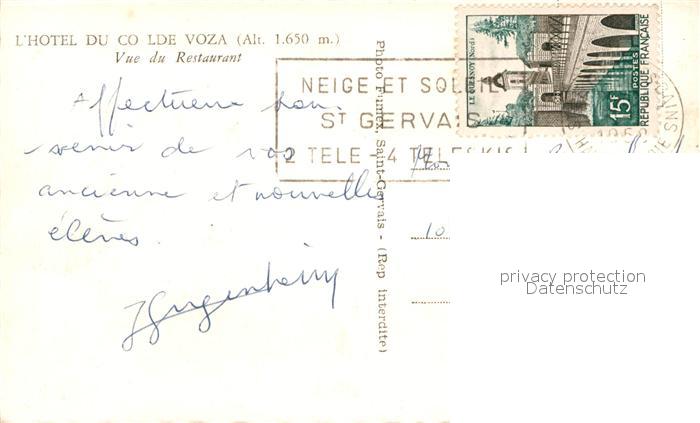 L'HOTEL DU CO LDE VOZA (Alt. 1.650 m.)
Vue du Restaurant
Affectueux bon
venir de vos
ancienne et nouvelles
élèves.
Photo Fumex, Saint-Gervais - (Rep interdite)
NEIGE ET SOLEIL
ST GERVAIS
2 TELE - 4 TELESKIS
LE QUESNOY (Nord)
15F
POSTES
REPUBLIQUE FRANÇAISE
10
privacy protection
Datenschutz